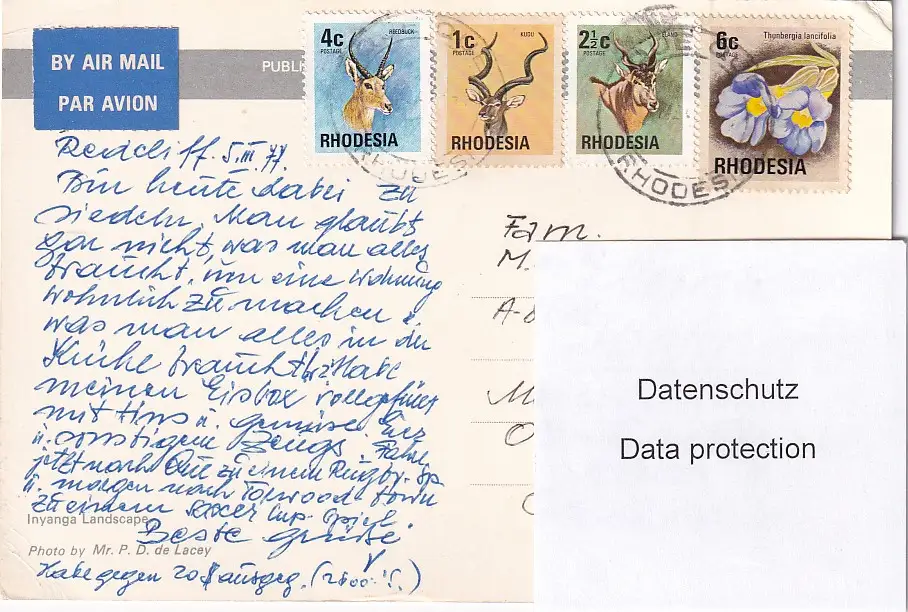 BY AIR MAIL
PAR AVION
PUBLI
4c
POSTAGE
REEDBUCK
RHODESIA
1c
POSTAGE
KUDU
RHODESIA
2½c
POSTAGE
ELAND
RHODESIA
6c
POSTAGE
Thunbergia lancifolia
RHODESIA
RHODESIA
RHODESI
Redcliff 5.III 77
Bin heute dabei zu
siedeln. Man glaubt
gar nicht, was man alles
braucht, um eine Wohnung
wohnlich zu machen u.
was man alles in der
Küche braucht. Habe
meinen Eisbox vollgefüllt
mit u. Gemüse
u. sonstigem Zeugs. Fahre
jetzt nach Que zu einem Rugby-Sp.
u. morgen nach Torwood town
zu einem soccer Cup-Spiel.
Beste Grüße
Habe gegen 20 $ ausgeg.
Inyanga Landscape
Photo by Mr. P. D. de Lacey
Fam.
M.
A-
M
O
Datenschutz
Data protection